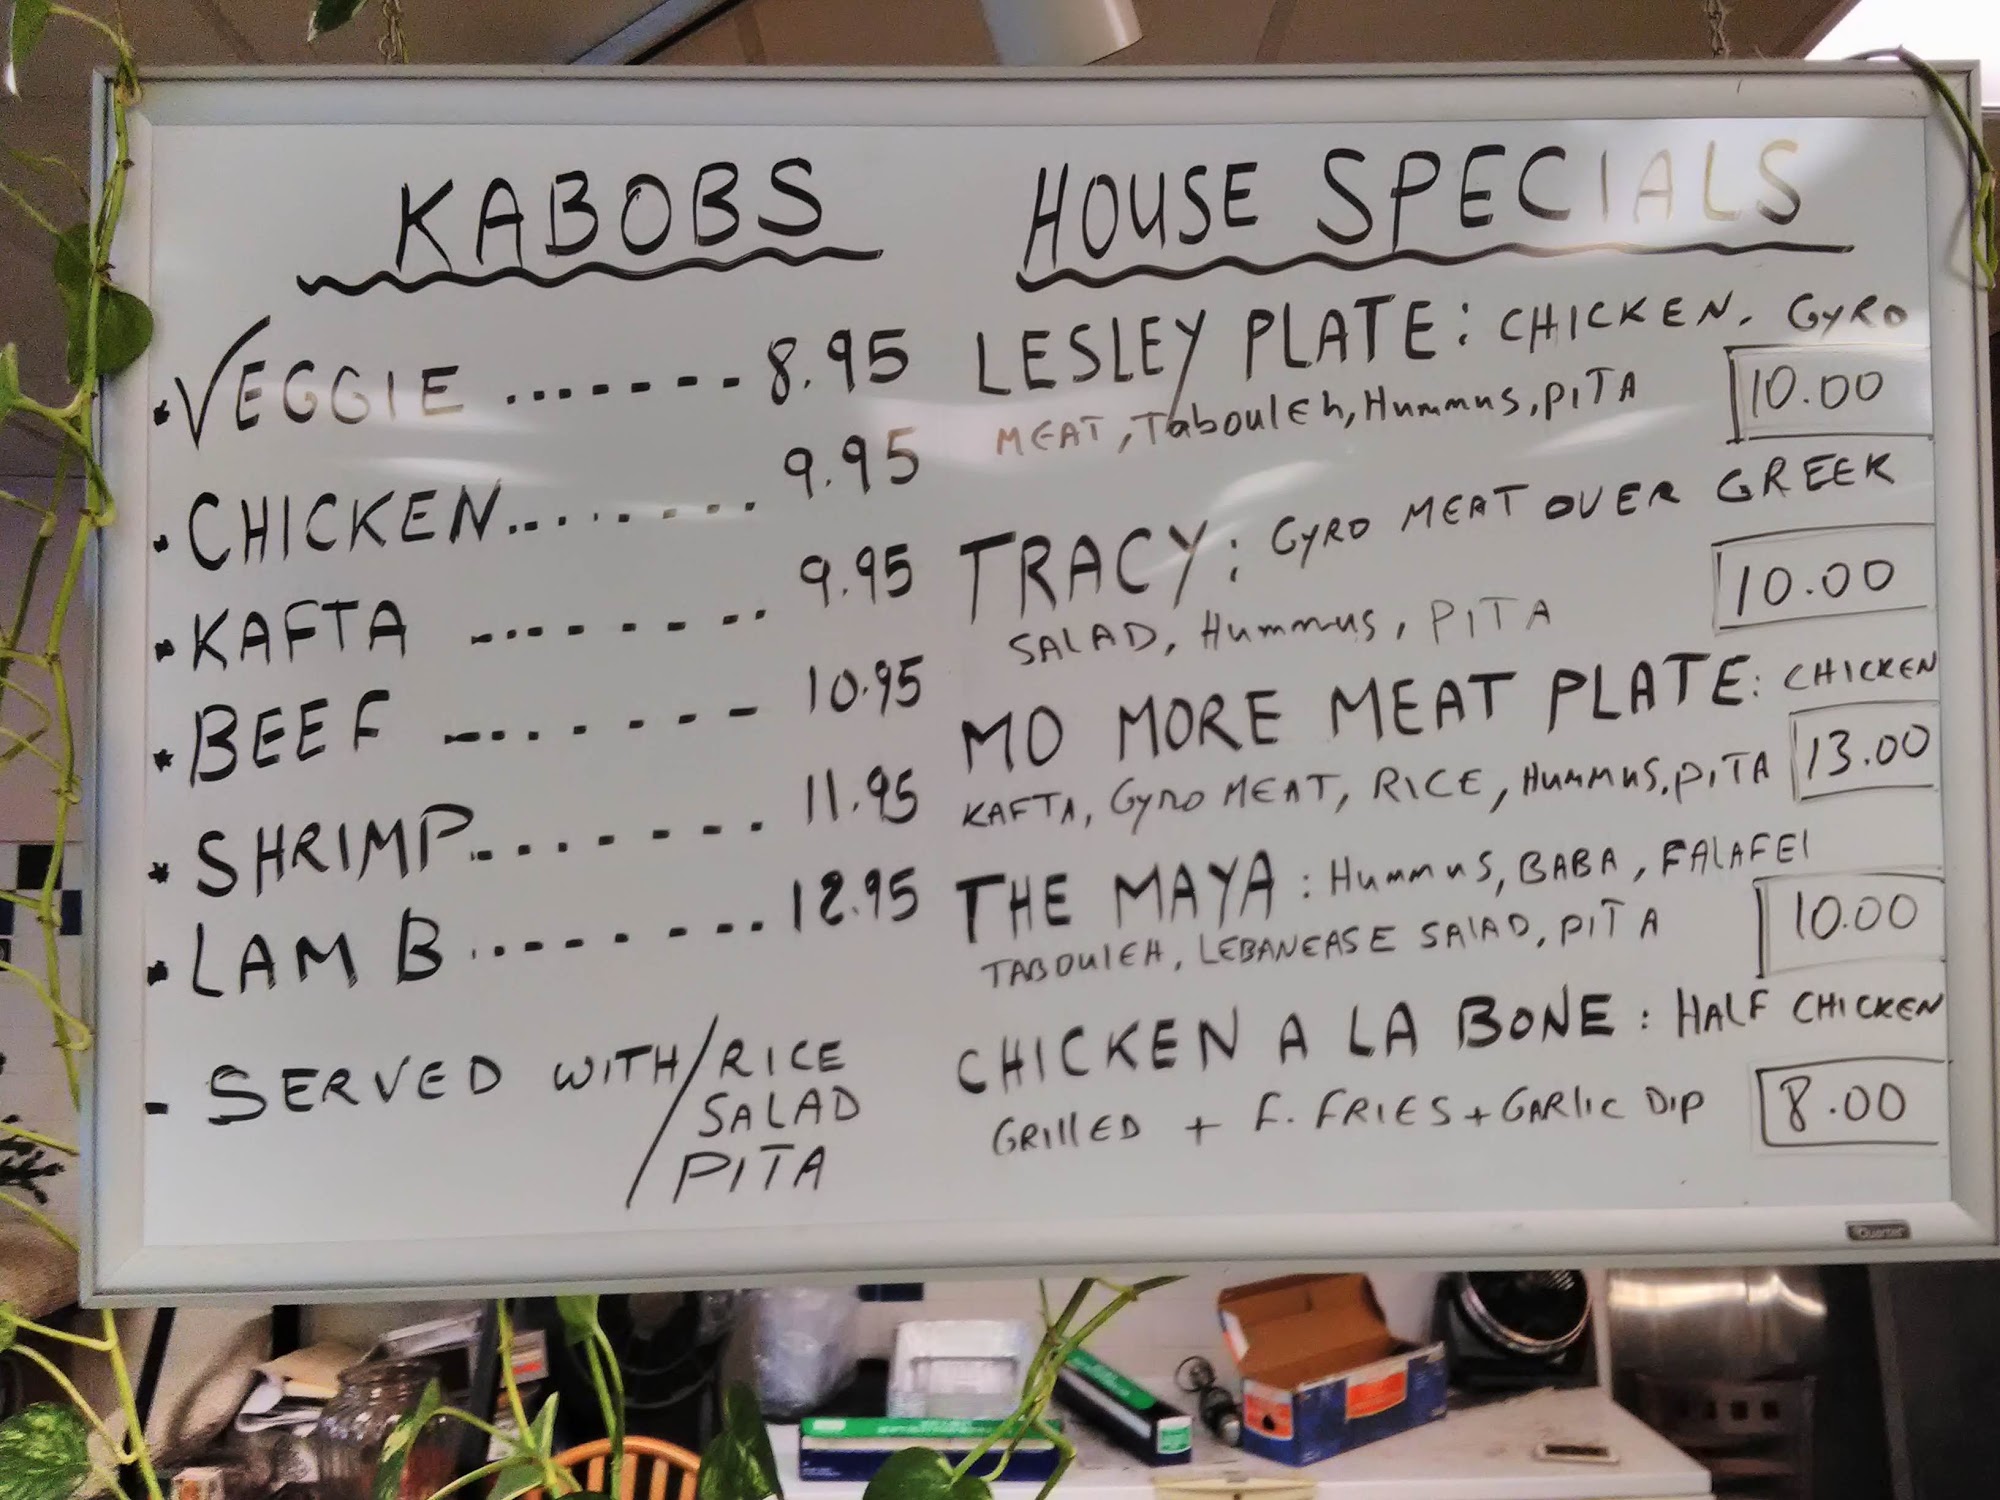 KABOBS
* VEGGIE ....... 8.95
* CHICKEN ........ 9.95
* KAFTA -------- 9.95
* BEEF -------- 10.95
* SHRIMP ........ 11.95
* LAMB ........ 12.95
- SERVED WITH / RICE
SALAD
PITA
HOUSE SPECIALS
LESLEY PLATE: CHICKEN, GYRO
MEAT, TaboulEh, Hummus, PITA 10.00
TRACY: GYRO MEAT OVER GREEK
SALAD, Hummus, PITA 10.00
MO MORE MEAT PLATE: CHICKEN
KAFTA, GYRO MEAT, RICE, Hummus, PITA 13.00
THE MAYA: Hummus, BABA, FALAFEl
TABOUlEH, LEBANEASE SAlAD, PITA 10.00
CHICKEN A LA BONE: HALF CHICKEN
GRIllED + F. FRIES + GARlIC DIP 8.00
Quartet